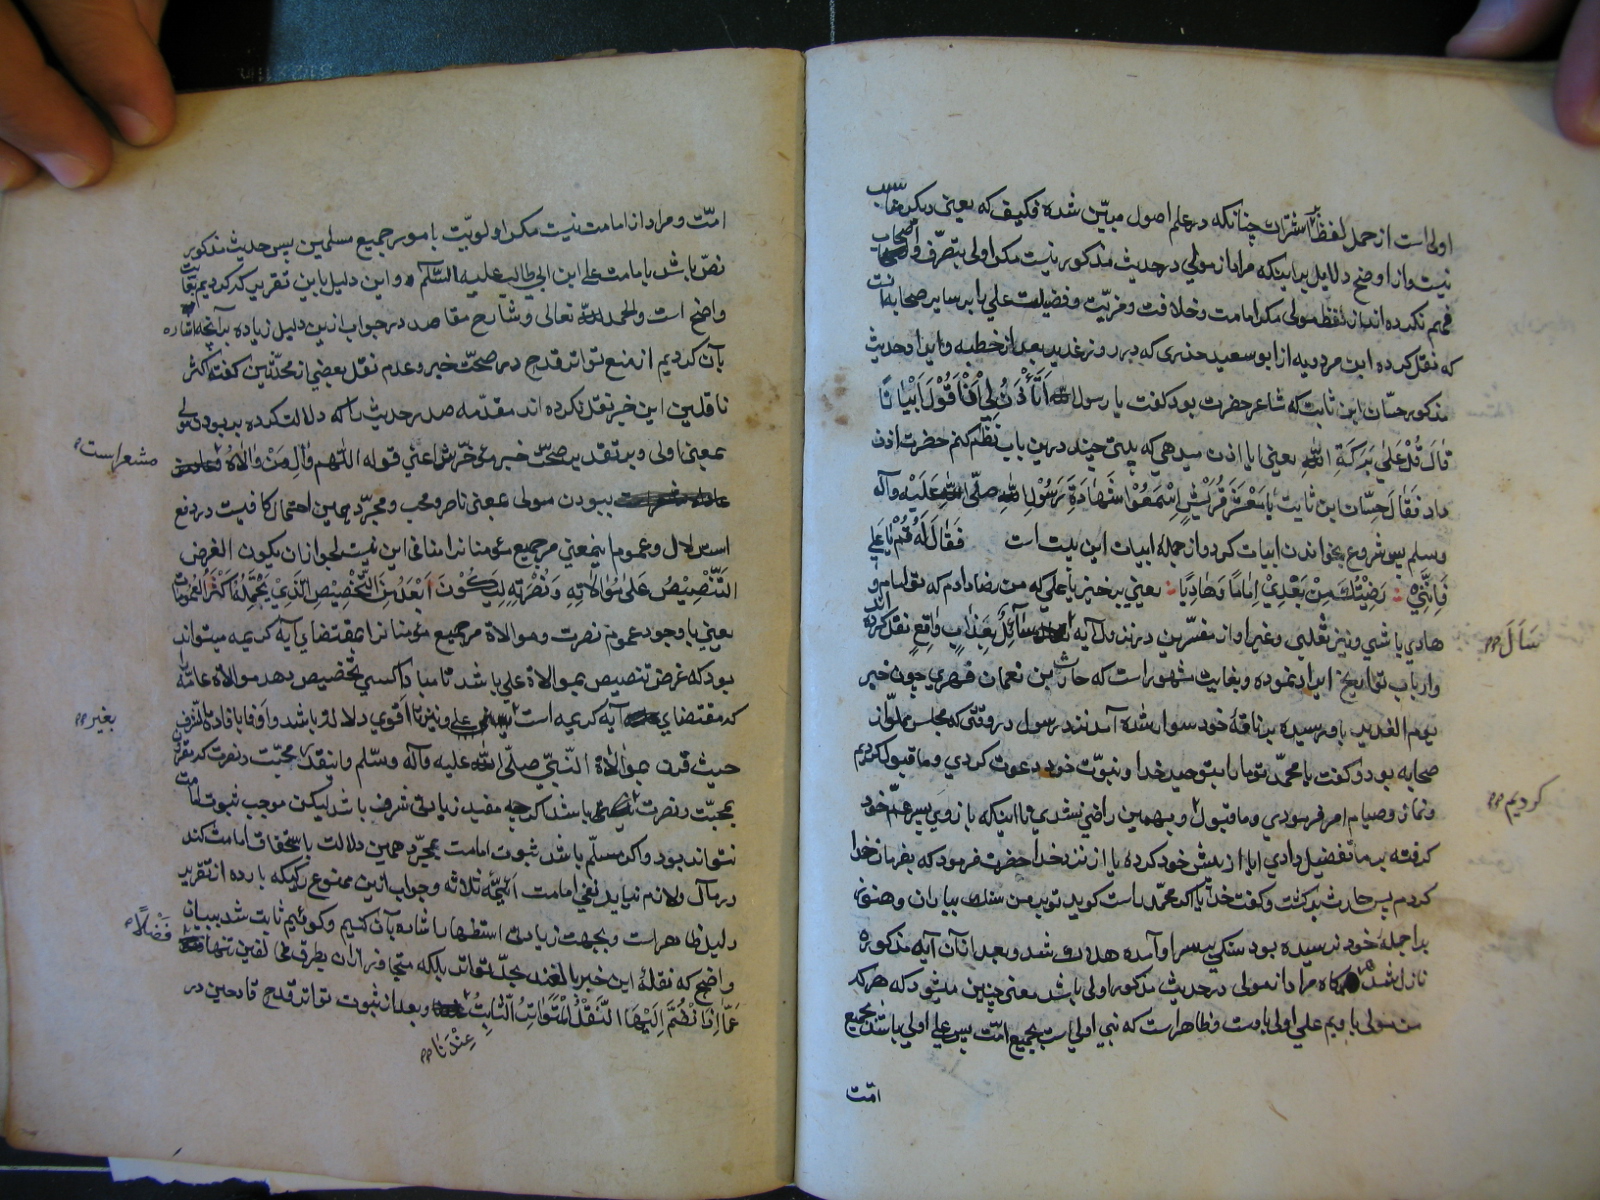 اولی است از حمل لفظ بر اشتراک چنانکه در علم اصول مبیّن شده فکیف که یعنی دیکر مناسب
نیست و از اوضح دلایل بر اینکه مراد از مولی در حدیث مذکور نیست مکر اولی بتصرّف و اصحاب
فهم نکرده اند از لفظ مولی مکر امامت و خلافت و مزیّت و فضیلت علی را بر سایر صحابه انست
که نقل کرده ابن مردویه از ابو سعید خدری که در روز غدیر بعد از خطبه و ایراد حدیث
مذکور حسّان ابن ثابت که شاعر حضرت بود کفت یا رسول الله اَتَأْذَنُ لِی اَنْ اَقُوْلَ اَبْیَاتًا
قَالَ قُلْ عَلٰی بَرَکَةِ اللّٰهِ یعنی ایا اذن میدهی که بیتی چند درین باب نظم کنم حضرت اذن
داد فَقَالَ حَسّان بن ثابت یَا مَعْشَرَ قُرَیْشٍ اِسْمَعُوْا شَهَادَةَ رَسُوْلِ اللّٰهِ صَلّی اللّٰه عَلَیْه وآله
وسلم پس شروع بخواندن ابیات کرد و از جمله ابیات این بیت است فَقَالَ لَهُ قُمْ یَا عَلِی
فَاِنَّنِیْ رَضِیْتُكَ مِنْ بَعْدِیْ اِمَامًا وَهَادِیًا یعنی برخیز یا علی که من رضا دادم که تو امام و
هادی باشی و نیز ثعلبی و غیر او از مفسّرین در نزول آیه سَأَلَ سَآئِلٌ بِعَذَابٍ وَاقِعٍ نقل کرده اند
سَاَلَ
و ارباب تواریخ ایراد نموده و بغایت مشهور است که حارث بن نعمان فهری چون خبر
یوم الغدیر باو رسیده بر ناقهٔ خود سوار شده آمد نزد رسول در وقتی که مجلس مملوّ از
صحابه بود و کفت یا محمّد تو ما را بتوحید خدا و نبوّت خود دعوت کردی و ما قبول کردیم
و نماز و صیام امر فرمودی و ما قبول و بهمین راضی نشدی تا اینکه بازوی پسر عمّ خود
کردیم
کرفته بر ما تفضیل دادی ایا از پیش خود کرده یا از نزد خدا حضرت فرمود که بفرمان خدا
کردم پس حارث بر کشت و کفت خدایا اکر محمّد راست کوید تو بر من سنك بباران و هنوز
براحلهٔ خود نرسیده بود سنکی بر سر او آمده هلاك شد و بعد از آن آیه مذکوره
نازل شد هر کاه مراد از مولی در حدیث مذکور اولی باشد معنی چنین میشود که هر که
من مولی باویم علی اولی باوست و ظاهر است که نبی اولی است بجمیع امّت پس علی اولی باشد بجمیع
امّت
امّت و مراد از امامت نیست مکر اولویّت بامور جمیع مسلمین پس حدیث مذکور
نصّ باشد بامامت علی ابن ابی طالب علیه السّلام و این دلیل باین تقریر که کردیم بغایت
واضح است والحمد لله تعالی و شارح مقاصد در جواب ازین دلیل زیاده بر آنچه اشاره
بآن کردیم از منع تواتر قدح در صحّت خبر و عدم نقل بعضی از محدّثین کفته اکثر
ناقلین این خبر نقل نکرده اند مقدّمه صدر حدیث را که دلالت کرده بر بودن مولی
بمعنی اولی و بر تقدیر صحّت خبر مؤخّرش اعنی قوله اللّٰهم وَالِ مَنْ وَالَاهُ
مشعر است
ببودن مولی بمعنی ناصر و محب و مجرّد همین احتمال کافیست در دفع
استدلال و عموم این معنی مر جمیع مؤمنانرا منافی این نیست لجواز ان یکون الغرض
التَّنْصِیْصِ عَلٰی مُوَالَاتِهِ وَنُصْرَتِهِ لِیَکُوْنَ اَبْعَدُ مِنَ التَّخْصِیْصِ الَّذِیْ یَحْتَمِلُهُ اَکْثَرُ العُمُومَات
یعنی با وجود عموم نصرت و موالاة مر جمیع مؤمنانرا بمقتضای آیه کریمه میتواند
بود که غرض تنصیص بموالاة علی باشد تا مبادا کسی تخصیص دهد موالاة عامّه را
که مقتضای آیه کریمه است بغیر علی و نیز تا اقوی دلاله باشد و اوفا بافادة الشرف
بغیر
حیث قرن بموالاة النّبی صلّی اللّٰه علیه وآله وسلّم و اینقدر محبّت و نصرت که مقرون
بمحبّت و نصرت نبی باشد اکرچه مفید زیادتی شرف باشد لیکن موجب ثبوت امامت
نتواند بود و اکر مسلّم باشد ثبوت امامت بمجرّد همین دلالت باستحقاق امامت کند
در مآل و لازم نیاید نفی امامت ائمّهٔ ثلاثه و جواب ازین ممنوع رکیکه بارده از تقریر
دلیل ظاهر است و بجهت زیادتی استظهار اشاره بآن کنیم و کوئیم ثابت شد ببیان
واضح که نقلهٔ این خبر بالغند بحدّ تواتر بلکه متجاوز از آن بطرق مخالفین تنها
فَضْلًا
عَمَّا اِذَا انْضَمَّ اِلَیْهَا النَّقْلُ الْمُتَوَاتِرُ الثَّابِتُ و بعد از ثبوت تواتر قدح قادحین در
عِنْدَنَا